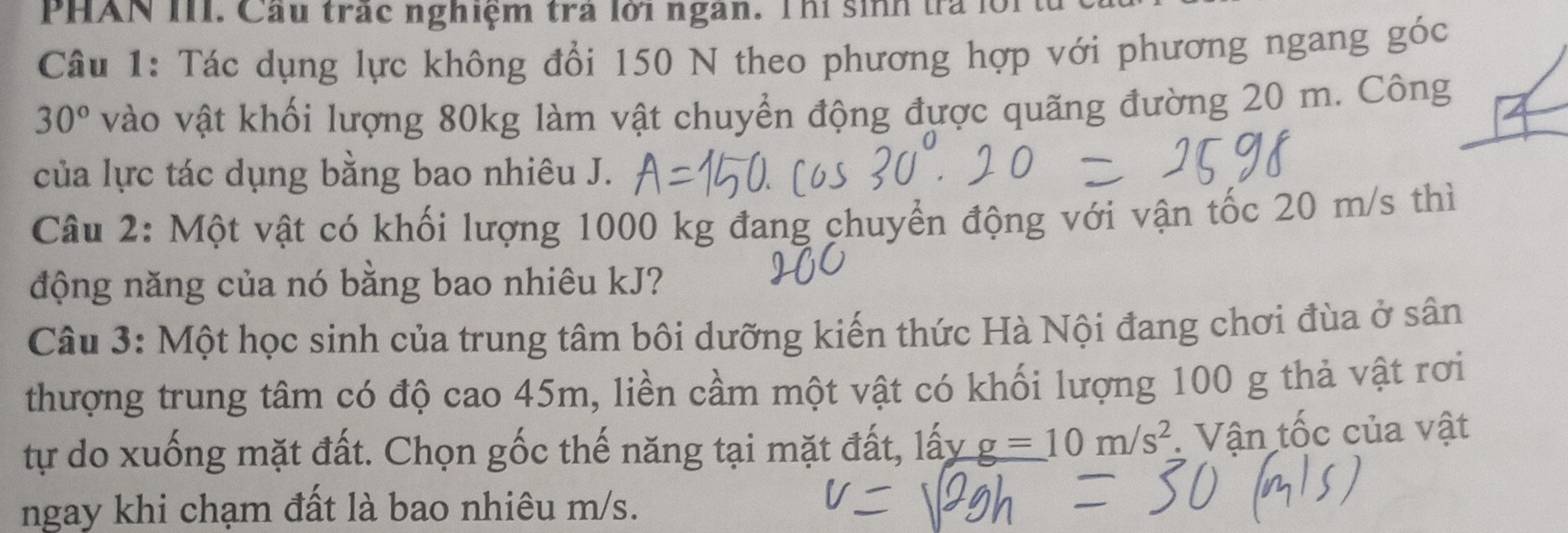 PHẦN III. Câu trắc nghiệm trả lời ngắn. Thí sinh trả lời từ
Câu 1: Tác dụng lực không đổi 150 N theo phương hợp với phương ngang góc
30° vào vật khối lượng 80kg làm vật chuyển động được quãng đường 20 m. Công
của lực tác dụng bằng bao nhiêu J. A=150. cos 30°. 20 = 2598
Câu 2: Một vật có khối lượng 1000 kg đang chuyển động với vận tốc 20 m/s thì
động năng của nó bằng bao nhiêu kJ? 200
Câu 3: Một học sinh của trung tâm bôi dưỡng kiến thức Hà Nội đang chơi đùa ở sân
thượng trung tâm có độ cao 45m, liền cầm một vật có khối lượng 100 g thả vật rơi
tự do xuống mặt đất. Chọn gốc thế năng tại mặt đất, lấy g = 10 m/s². Vận tốc của vật
ngay khi chạm đất là bao nhiêu m/s. v = √2gh = 30 (m/s)